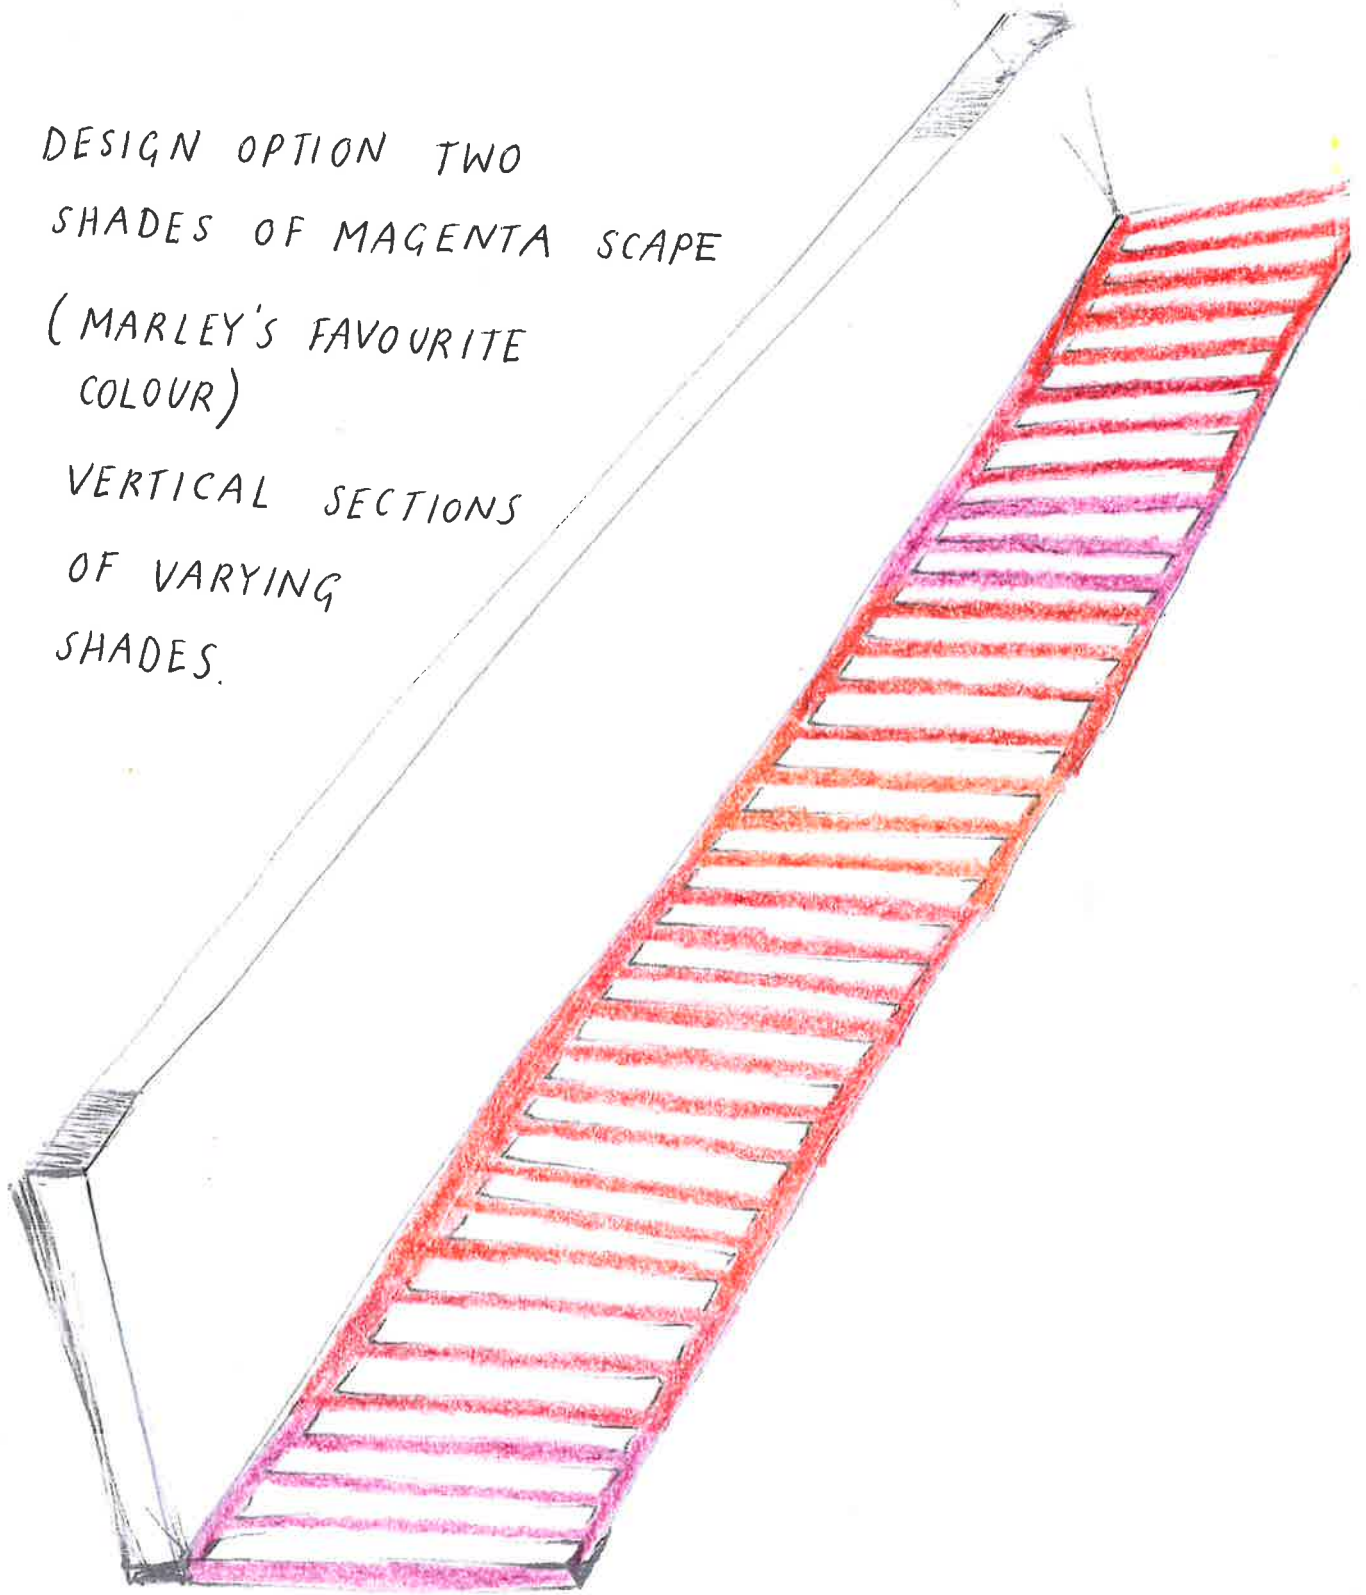 DESIGN OPTION TWO
SHADES OF MAGENTA SCAPE
(MARLEY'S FAVOURITE
COLOUR)
VERTICAL SECTIONS
OF VARYING
SHADES.